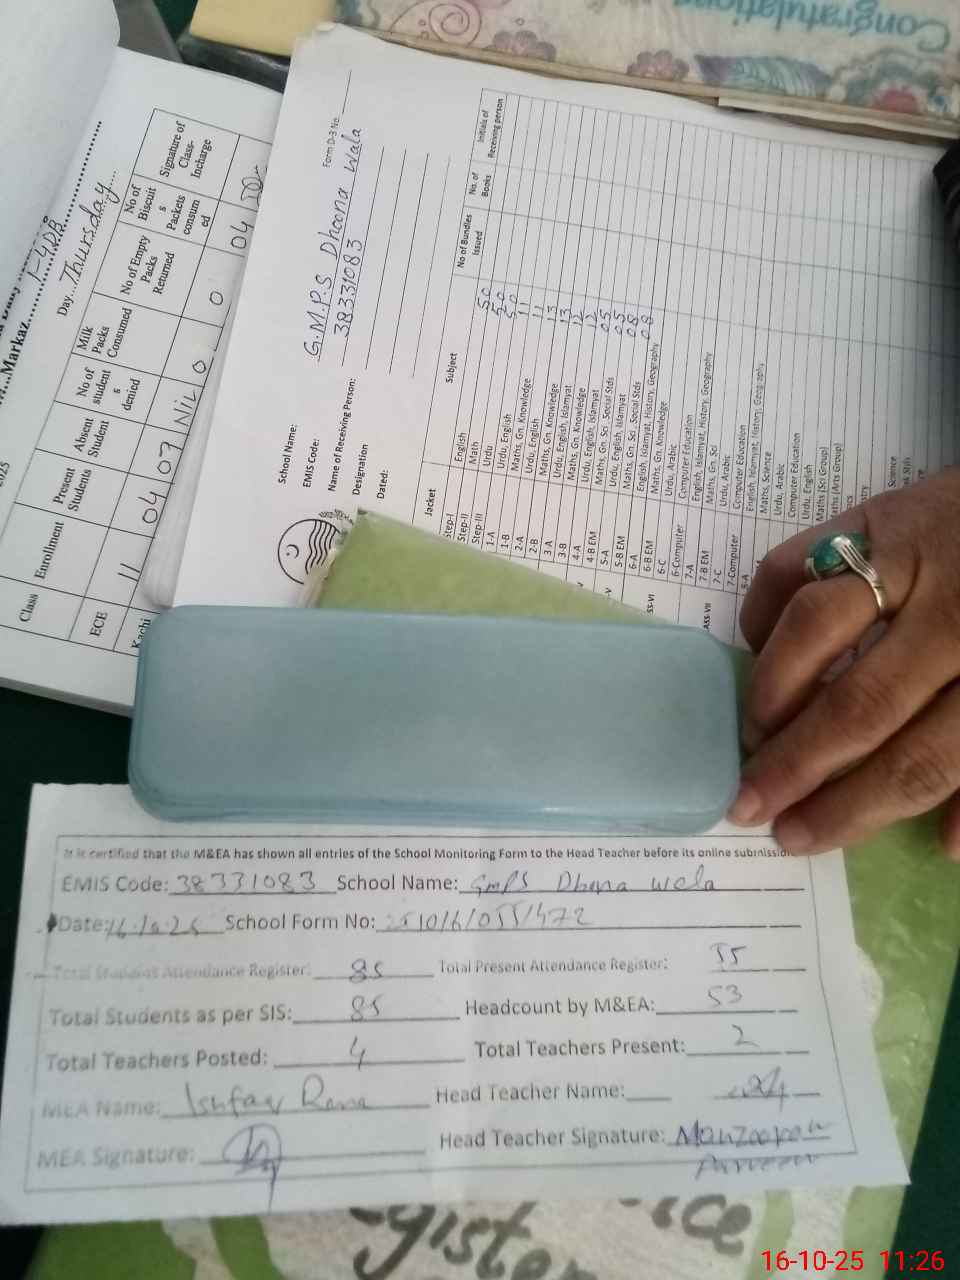 Congratulations
Markaz
1-4DB
Day...Thursday...
Class
Enrollment
Present Students
Absent Student
No of students denied
Milk Packs Consumed
No of Empty Packs Returned
No of Biscuits Packets consumed
Signature of Class-Incharge
ECE
Kachi 11 04 07 NIL 0 0 04
Form D-3 No.
School Name: G.M.P.S Dhoona Wala
EMIS Code: 38331083
Name of Receiving Person:
Designation
Dated:
Jacket Subject No of Bundles Issued No. of Books Initials of Receiving person
Step-I English 50
Step-II Math 50
Step-III Urdu 50
1-A Urdu, English 11
1-B Maths, Gn. Knowledge 11
2-A Urdu, English 13
2-B Maths, Gn. Knowledge 13
3 A Urdu, English, Islamyat 12
3-B Maths, Gn. Knowledge 12
4-A Urdu, English, Islamyat 05
4-B EM Maths, Gn. Sci . Social Stds 05
5-A Urdu, English, Islamyat 08
5-B EM Maths, Gn. Sci , Social Stds 08
6-A English, Islamyat, History, Geography
6-B EM Maths, Gn. Knowledge
6-C Urdu, Arabic
6-Computer Computer Education
7-A English, Islamyat, History, Geography
7-B EM Maths, Gn. Sci
7-C Urdu, Arabic
7-Computer Computer Education
8-A English, Islamyat, History, Geography
Maths, Science
Urdu, Arabic
Computer Education
Urdu, English
Maths (Sci Group)
Maths (Arts Group)
Science
It is certified that the M&EA has shown all entries of the School Monitoring Form to the Head Teacher before its online submission.
EMIS Code: 38331083 School Name: GMPS Dhona wala
Date: 16.10.25 School Form No: 251016/055/472
Total Student Attendance Register: 85 Total Present Attendance Register: 55
Total Students as per SIS: 85 Headcount by M&EA: 53
Total Teachers Posted: 4 Total Teachers Present: 2
MEA Name: Ishfaq Rana Head Teacher Name:
MEA Signature: Head Teacher Signature: Manzooran
Parveen
16-10-25 11:26